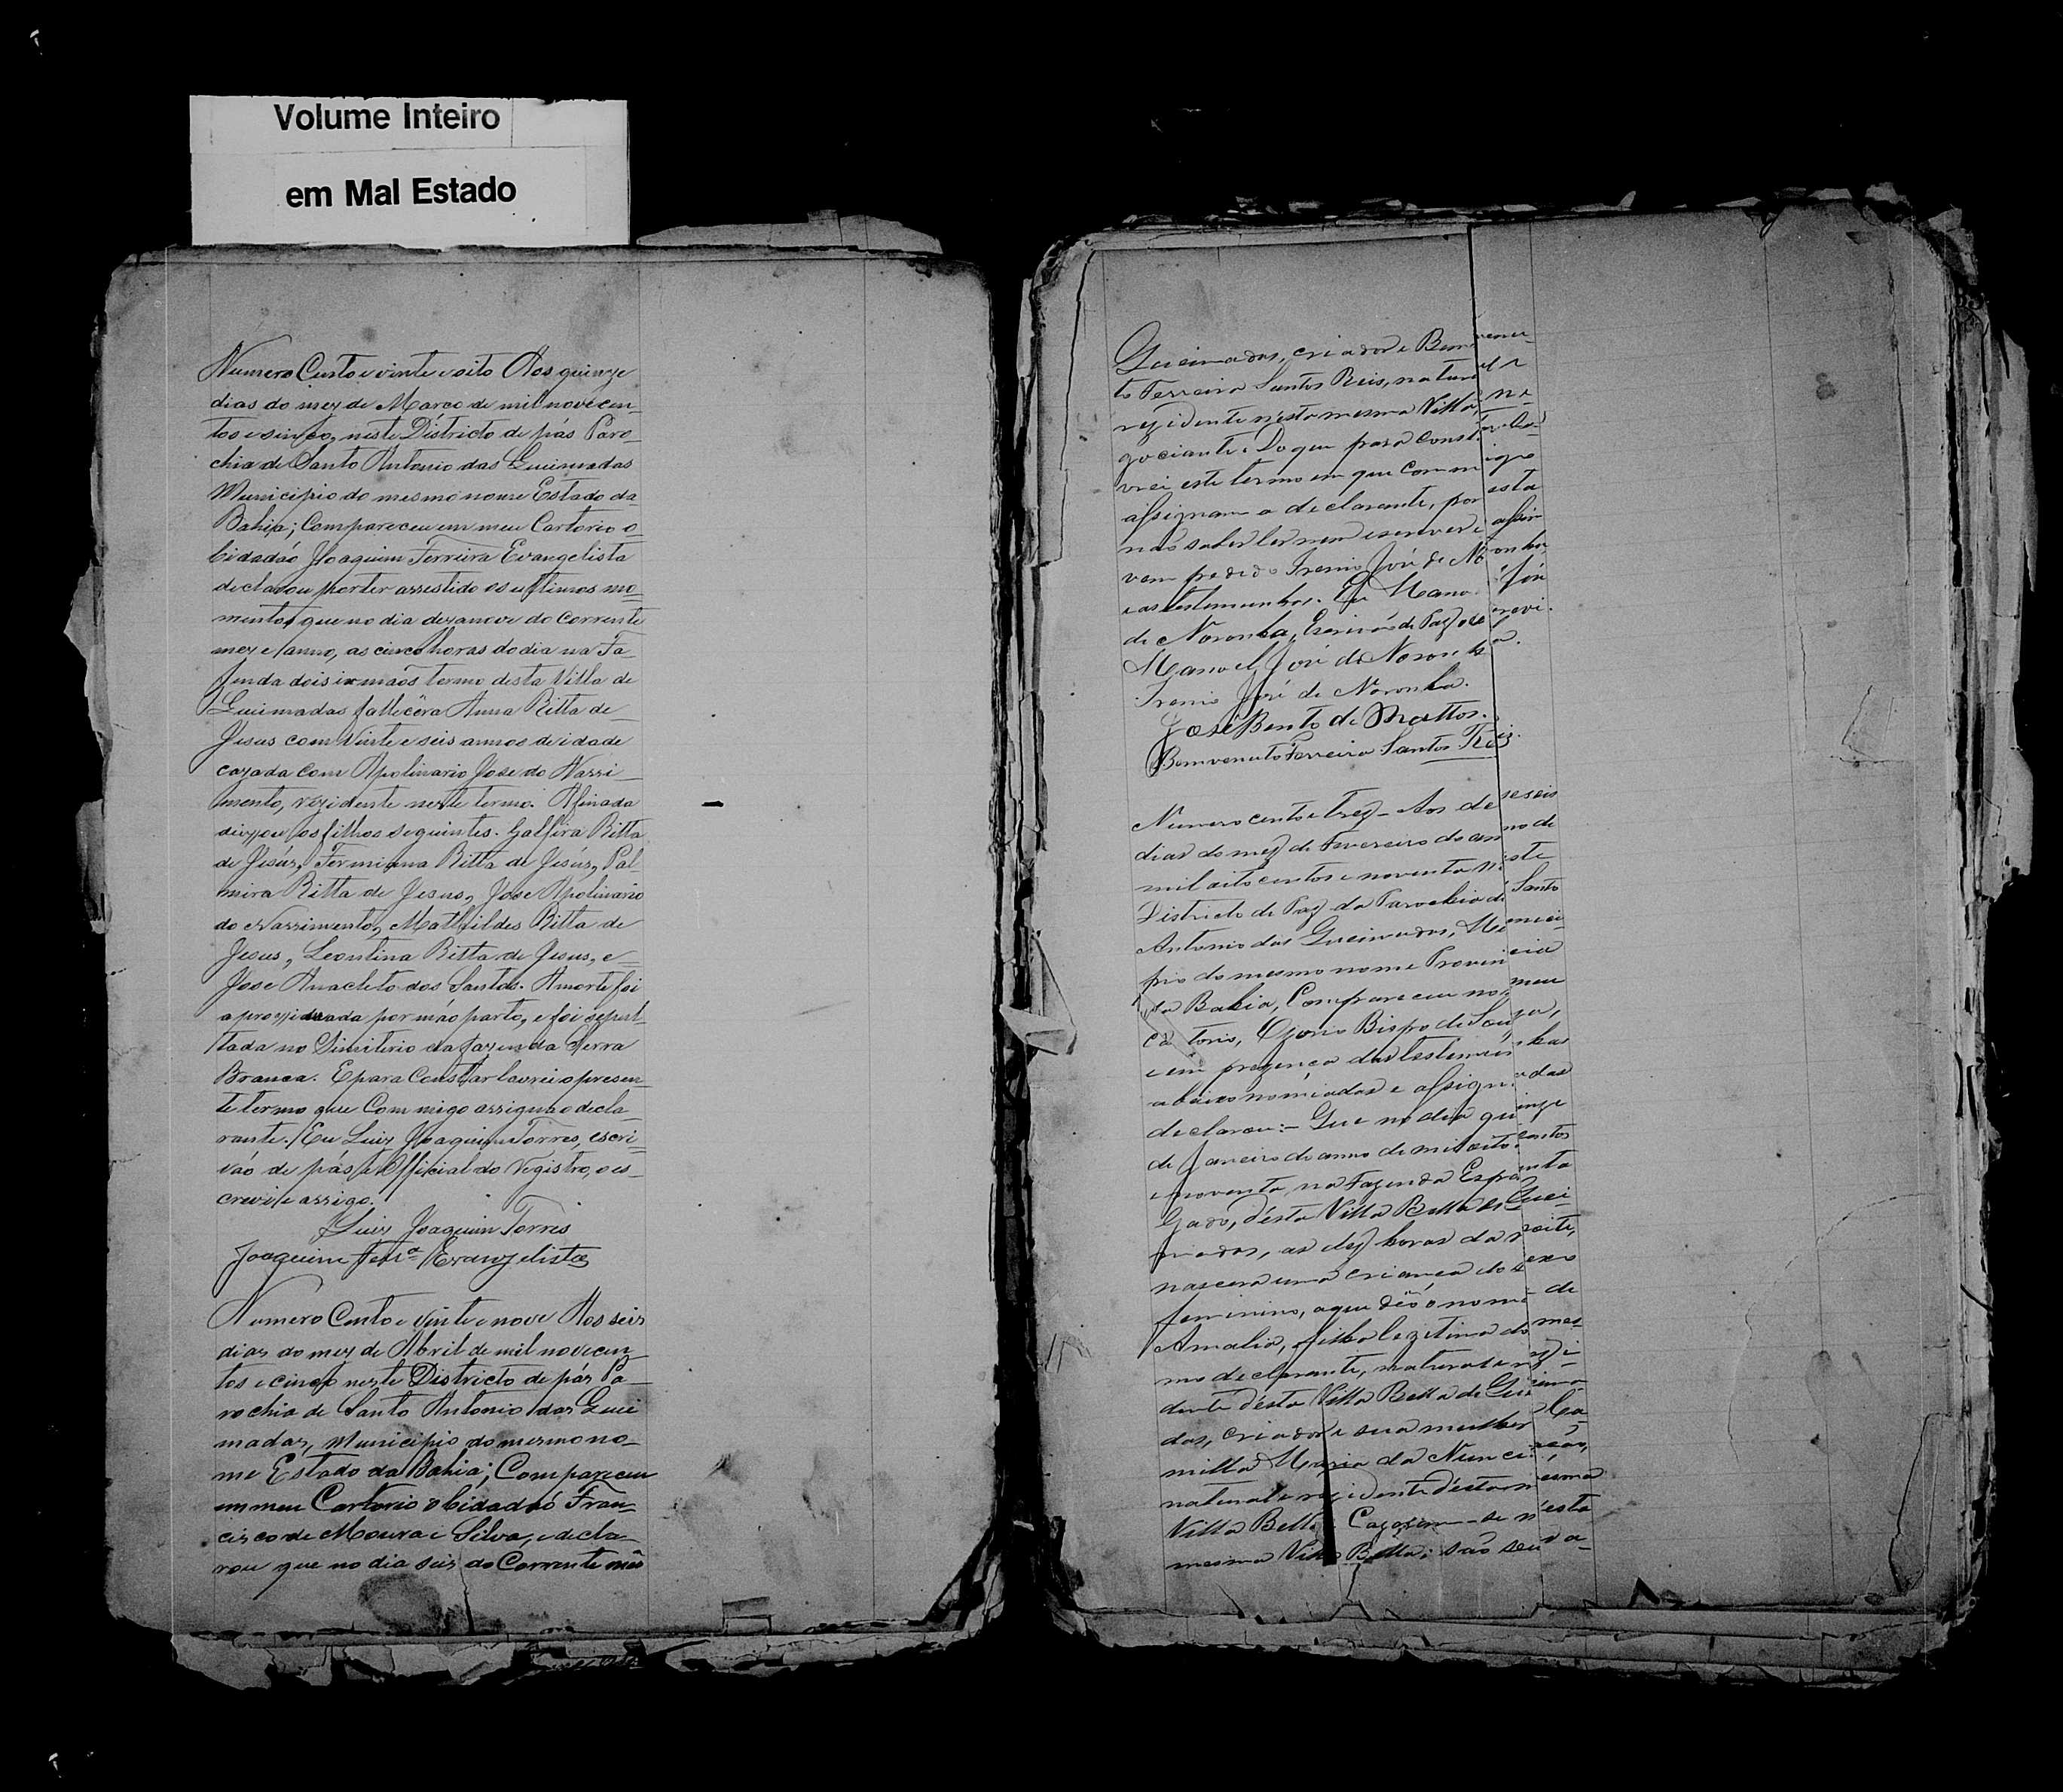 Volume Inteiro
em Mal Estado
Numero Cento e vinte e oito Aos quinze
dias do mez de Março de mil novecen-
tos e sinco, neste Districto de pás Paro-
chia de Santo Antonio das Queimadas
Municipio do mesmo nome Estado da
Bahia; Compareceu em meu Cartorio o
Cidadão Joaquim Ferreira Evangelista
declarou por ter assestido os ultimos mo-
mentos que no dia dezanove do corrente
mez e anno, as cinco horas do dia na Fa-
zenda dois irmãos termo desta Villa de
Queimadas fallecera Anna Ritta de
Jesus com vinte e seis annos de idade
cazada com Apolinario Jose do Nassi-
mento, rezidente neste termo. A finada
deixou os filhos seguintes. Galfira Ritta
de Jesús, Fermiana Ritta de Jesús, Pal-
mira Ritta de Jesus, Jose Apolinario
do Nassimento, Mathildes Ritta de
Jesus, Leontina Ritta de Jesus, e
Jose Anacleto dos Santos. A morte foi
a proxidada por máo parto, e foi sepul-
tada no Simiterio da fazenda Serra
Branca. E para Constar lavrei o presen-
te termo que Com migo assigna o decla-
rante. Eu Luiz Joaquim Torres, escri-
vão de pás e Official do Registro, o es-
crevi e assigo.
Luiz Joaquim Torres
Joaquim Ferra Evangelista
Numero Cento e vinte e nove Aos seis
dias do mez de Abril de mil novecen-
tos e cinco neste Districto de pás Pa-
rochia de Santo Antonio das Quei
madas, Municipio do mesmo no-
me Estado da Bahia; Compareceu
em meu Cartorio o Cidadaó Fran-
cisco de Moura e Silva, e decla-
rou que no dia seis do Corrente mês
Queimadas, criador e Bemvenu-
to Ferreira Santos Reis, natural e
rezidente nésta mesma Villa, ne-
gociante. Do que para constar la-
vrei este termo em que commigo
assignam o declarante, por esta
não saber ler nem escrever assig-
nam pedido Irenio José de Noronha,
e as testemunhas. Eu Manoel José
de Noronha, Escrivão de Paz o escrevi.
Manoel José de Noronha.
Irenio José de Noronha.
José Bento de Mattos.
Bemvenuto Ferreira Santos Reis.
Numero cento e trez - Aos deseseis
dias do mez de Fevereiro do anno de
mil oito centos e noventa neste
Districto de Paz da Parochia de Santo
Antonio das Queimadas, Munici-
pio do mesmo nome Provincia
da Bahia, Compareceu no meu
ca torio, Ozorio Bispo de Souza,
e em prezença das testemunhas
abaixo nomiadas e assignadas
declarou:- Que no dia quinze
de Janeiro do anno de mil oito centos
e noventa, na Fazenda Espanta
Gado, désta Villa Bella de Quei-
madas, as dez horas da noite,
nascera uma criança do sexo
feminino, a que déo o nome de
Amalia, filha legitima do mes-
mo declarante, natural e rezi-
dente désta Villa Bella de Queima-
das, criador e sua mulher Ca-
milla Maria da Nunciação,
natural e rezidente désta mesma
Villa Bella. Cazaram-se n'esta
mesma Villa Bella; são seus a-